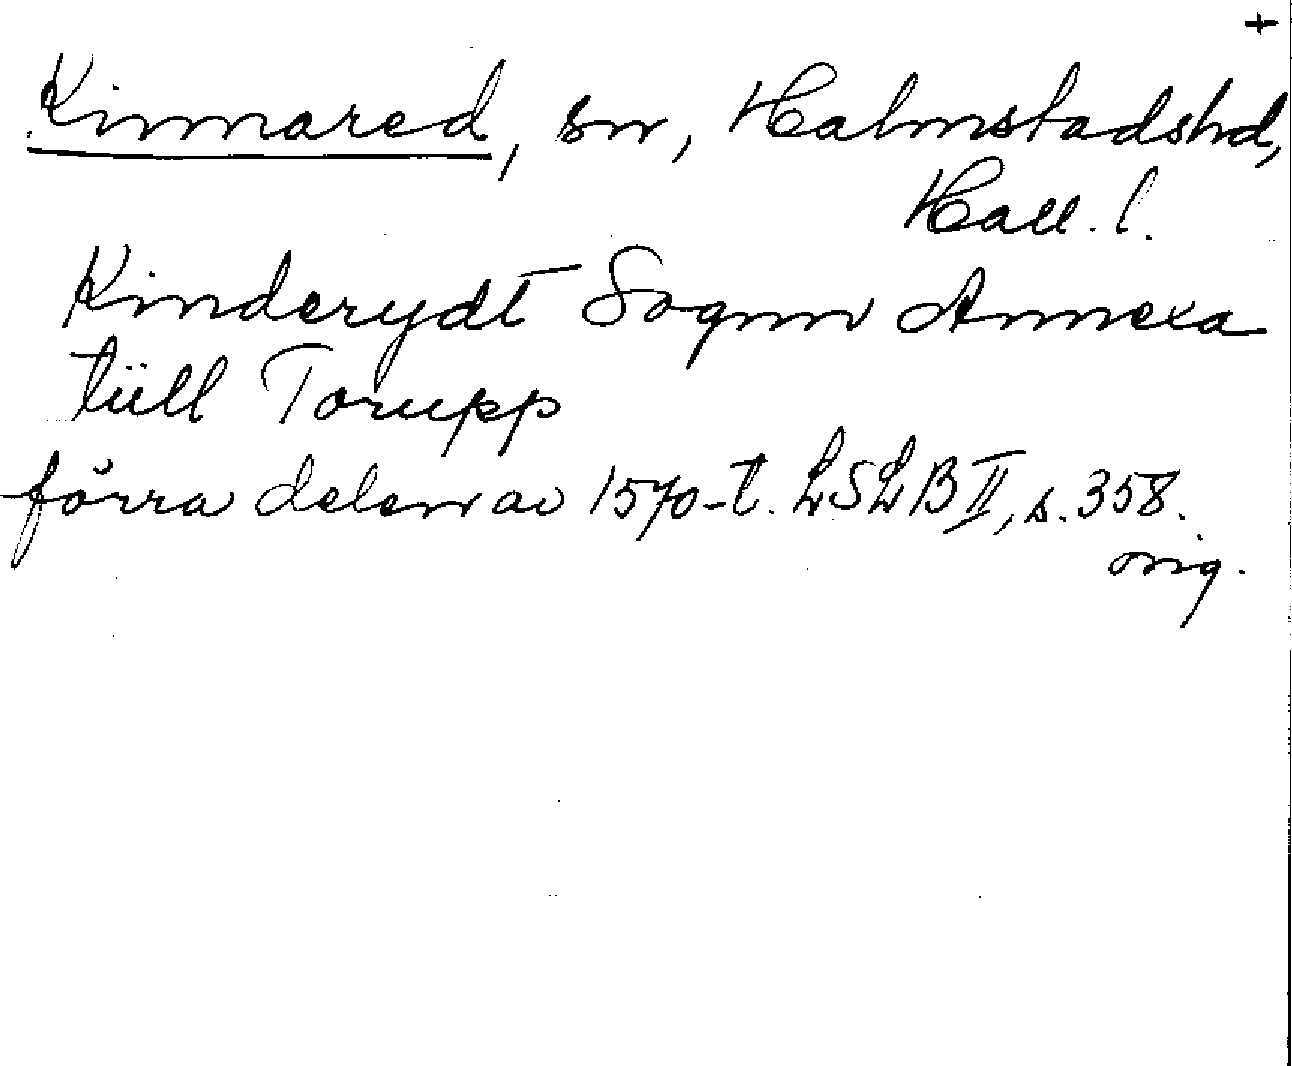 +
Kinnared, sn, Halmstads hd,
Hall. l.
Kinderydt Sognn Annexa
tüll Torupp
förra delen av 1570-t. LSLB II, s. 358.
orig.